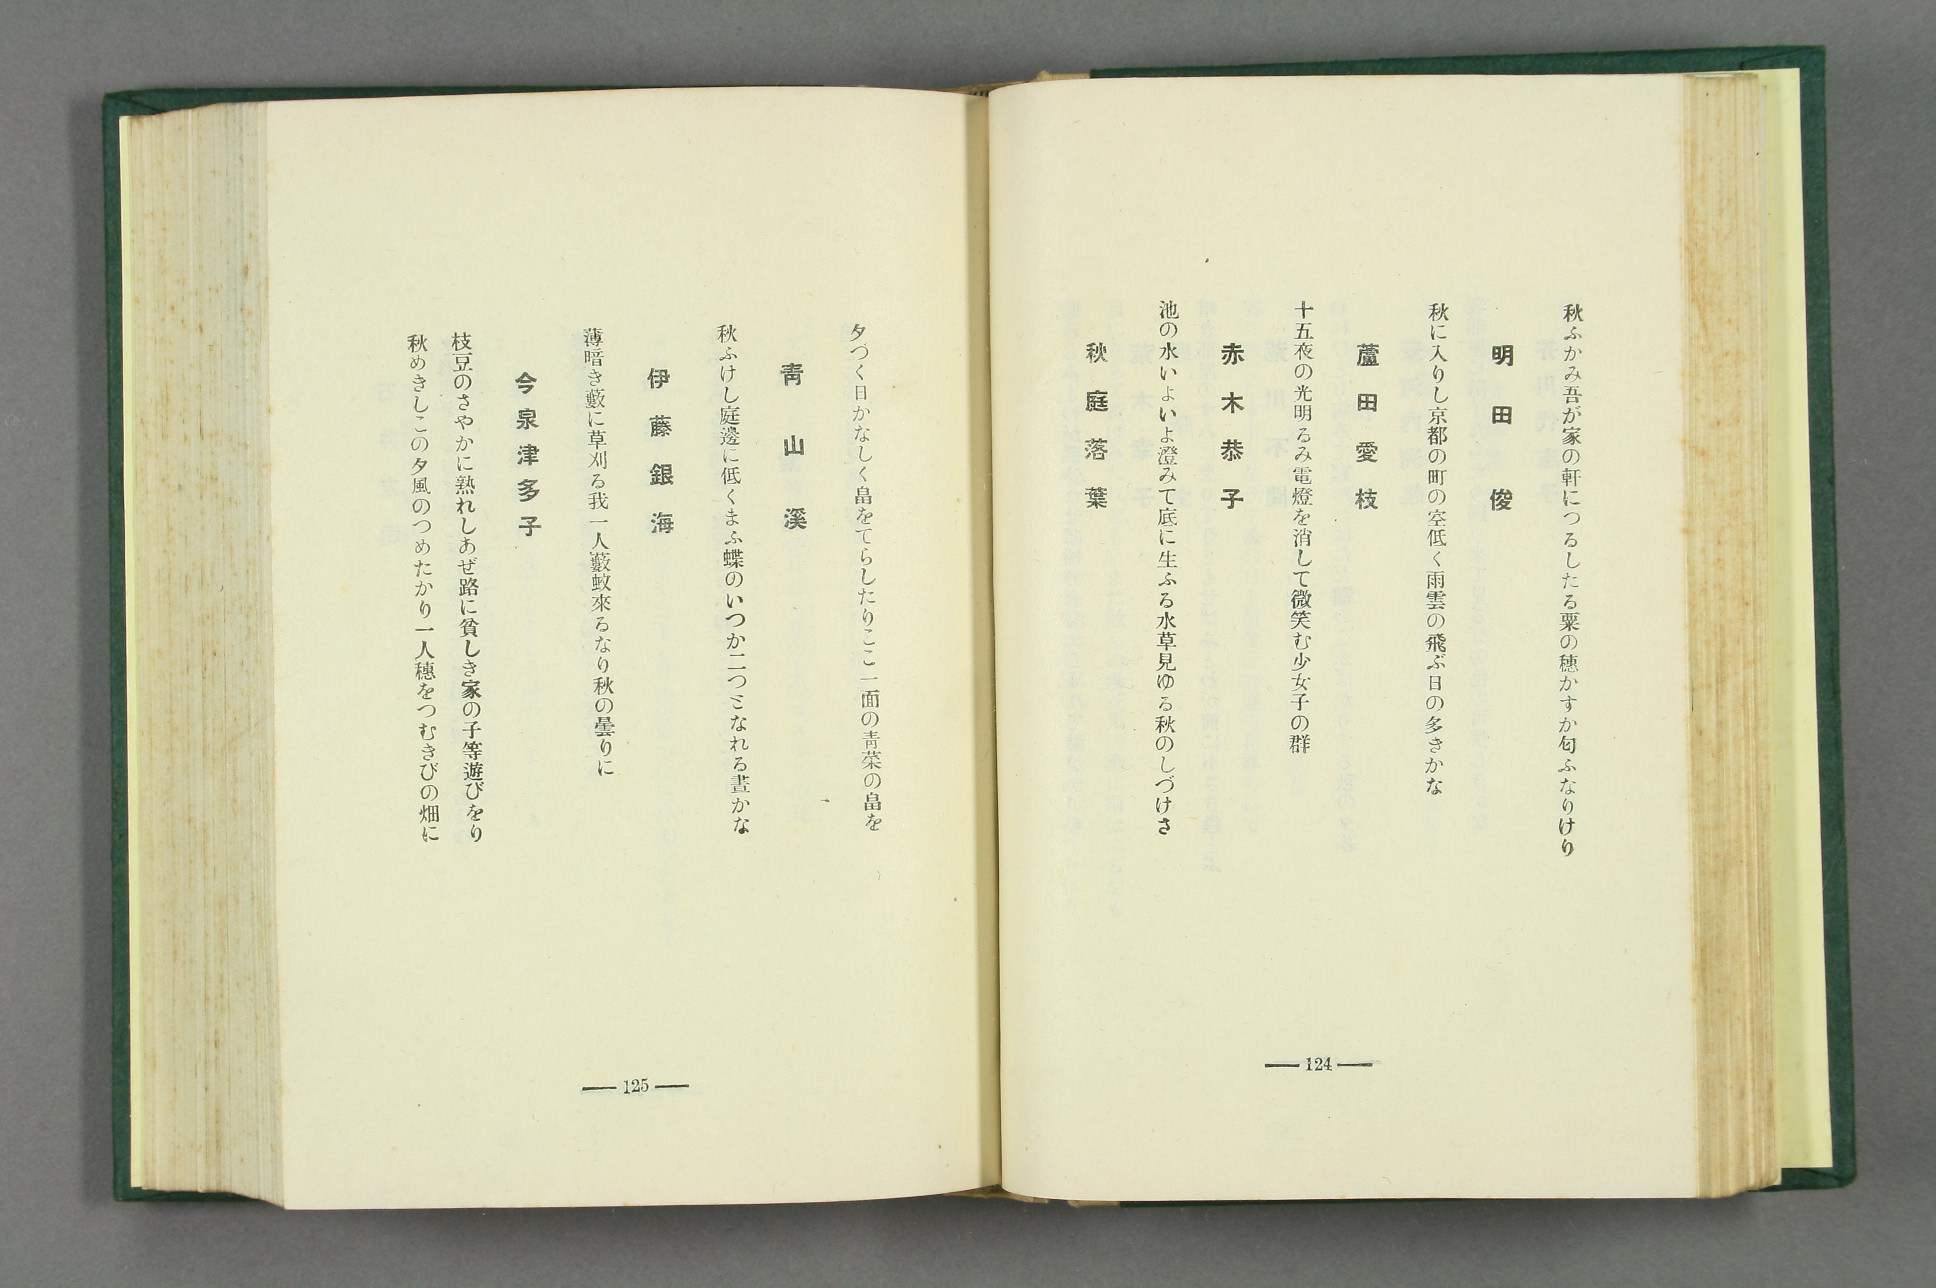 秋ふかみ吾が家の軒につるしたる粟の穗かすか匂ふなりけり
明田俊
秋に入りし京都の町の空低く雨雲の飛ぶ日の多きかな
蘆田愛枝
十五夜の光明るみ電燈を消して微笑む少女子の群
赤木恭子
池の水いよいよ澄みて底に生ふる水草見ゆる秋のしづけさ
秋庭落葉
― 124 ―
夕つく日かなしく畠をてらしたりここ一面の靑菜の畠を
靑山溪
秋ふけし庭邊に低くまふ蝶のいつか二つとなれる晝かな
伊藤銀海
薄暗き藪に草刈る我一人藪蚊來るなり秋の曇りに
今泉津多子
枝豆のさやかに熟れしあぜ路に貧しき家の子等遊びをり
秋めきしこの夕風のつめたかり一人穗をつむきびの畑に
― 125 ―